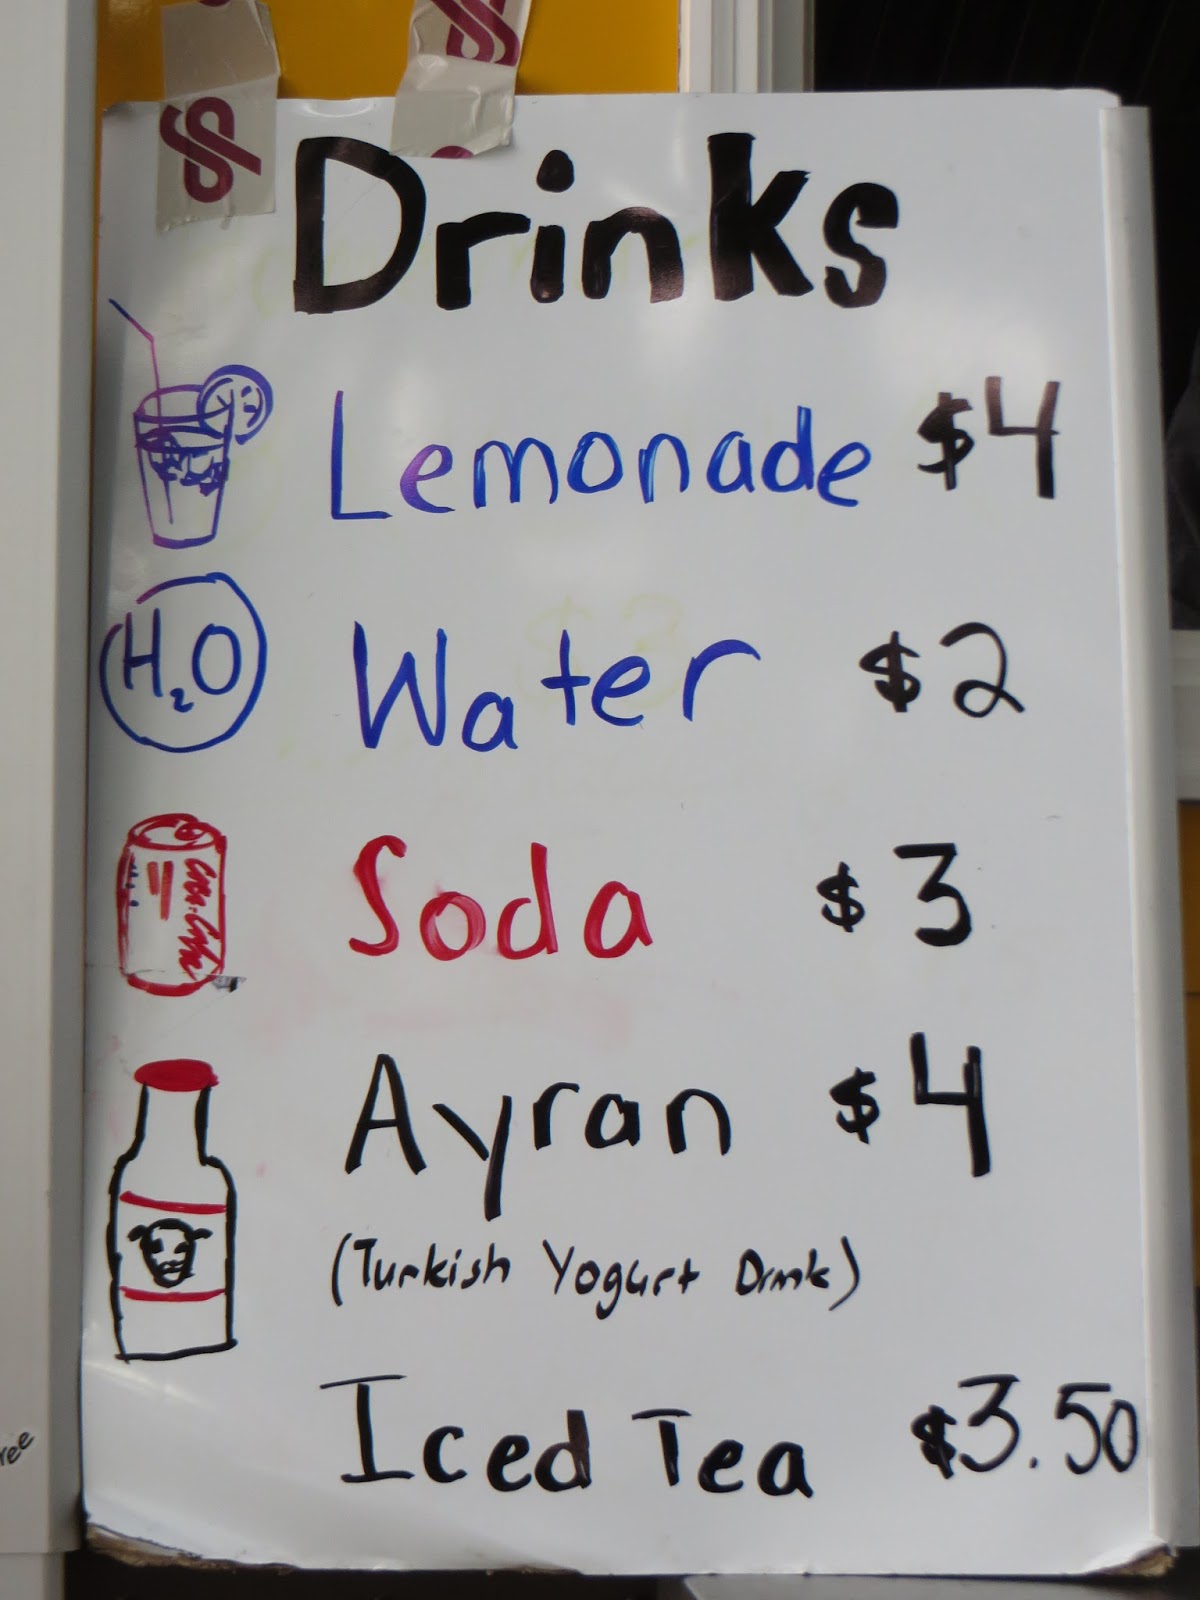 Drinks
Lemonade $4
H₂O Water $2
Soda $3
Ayran $4
(Turkish Yogurt Drink)
Iced Tea $3.50